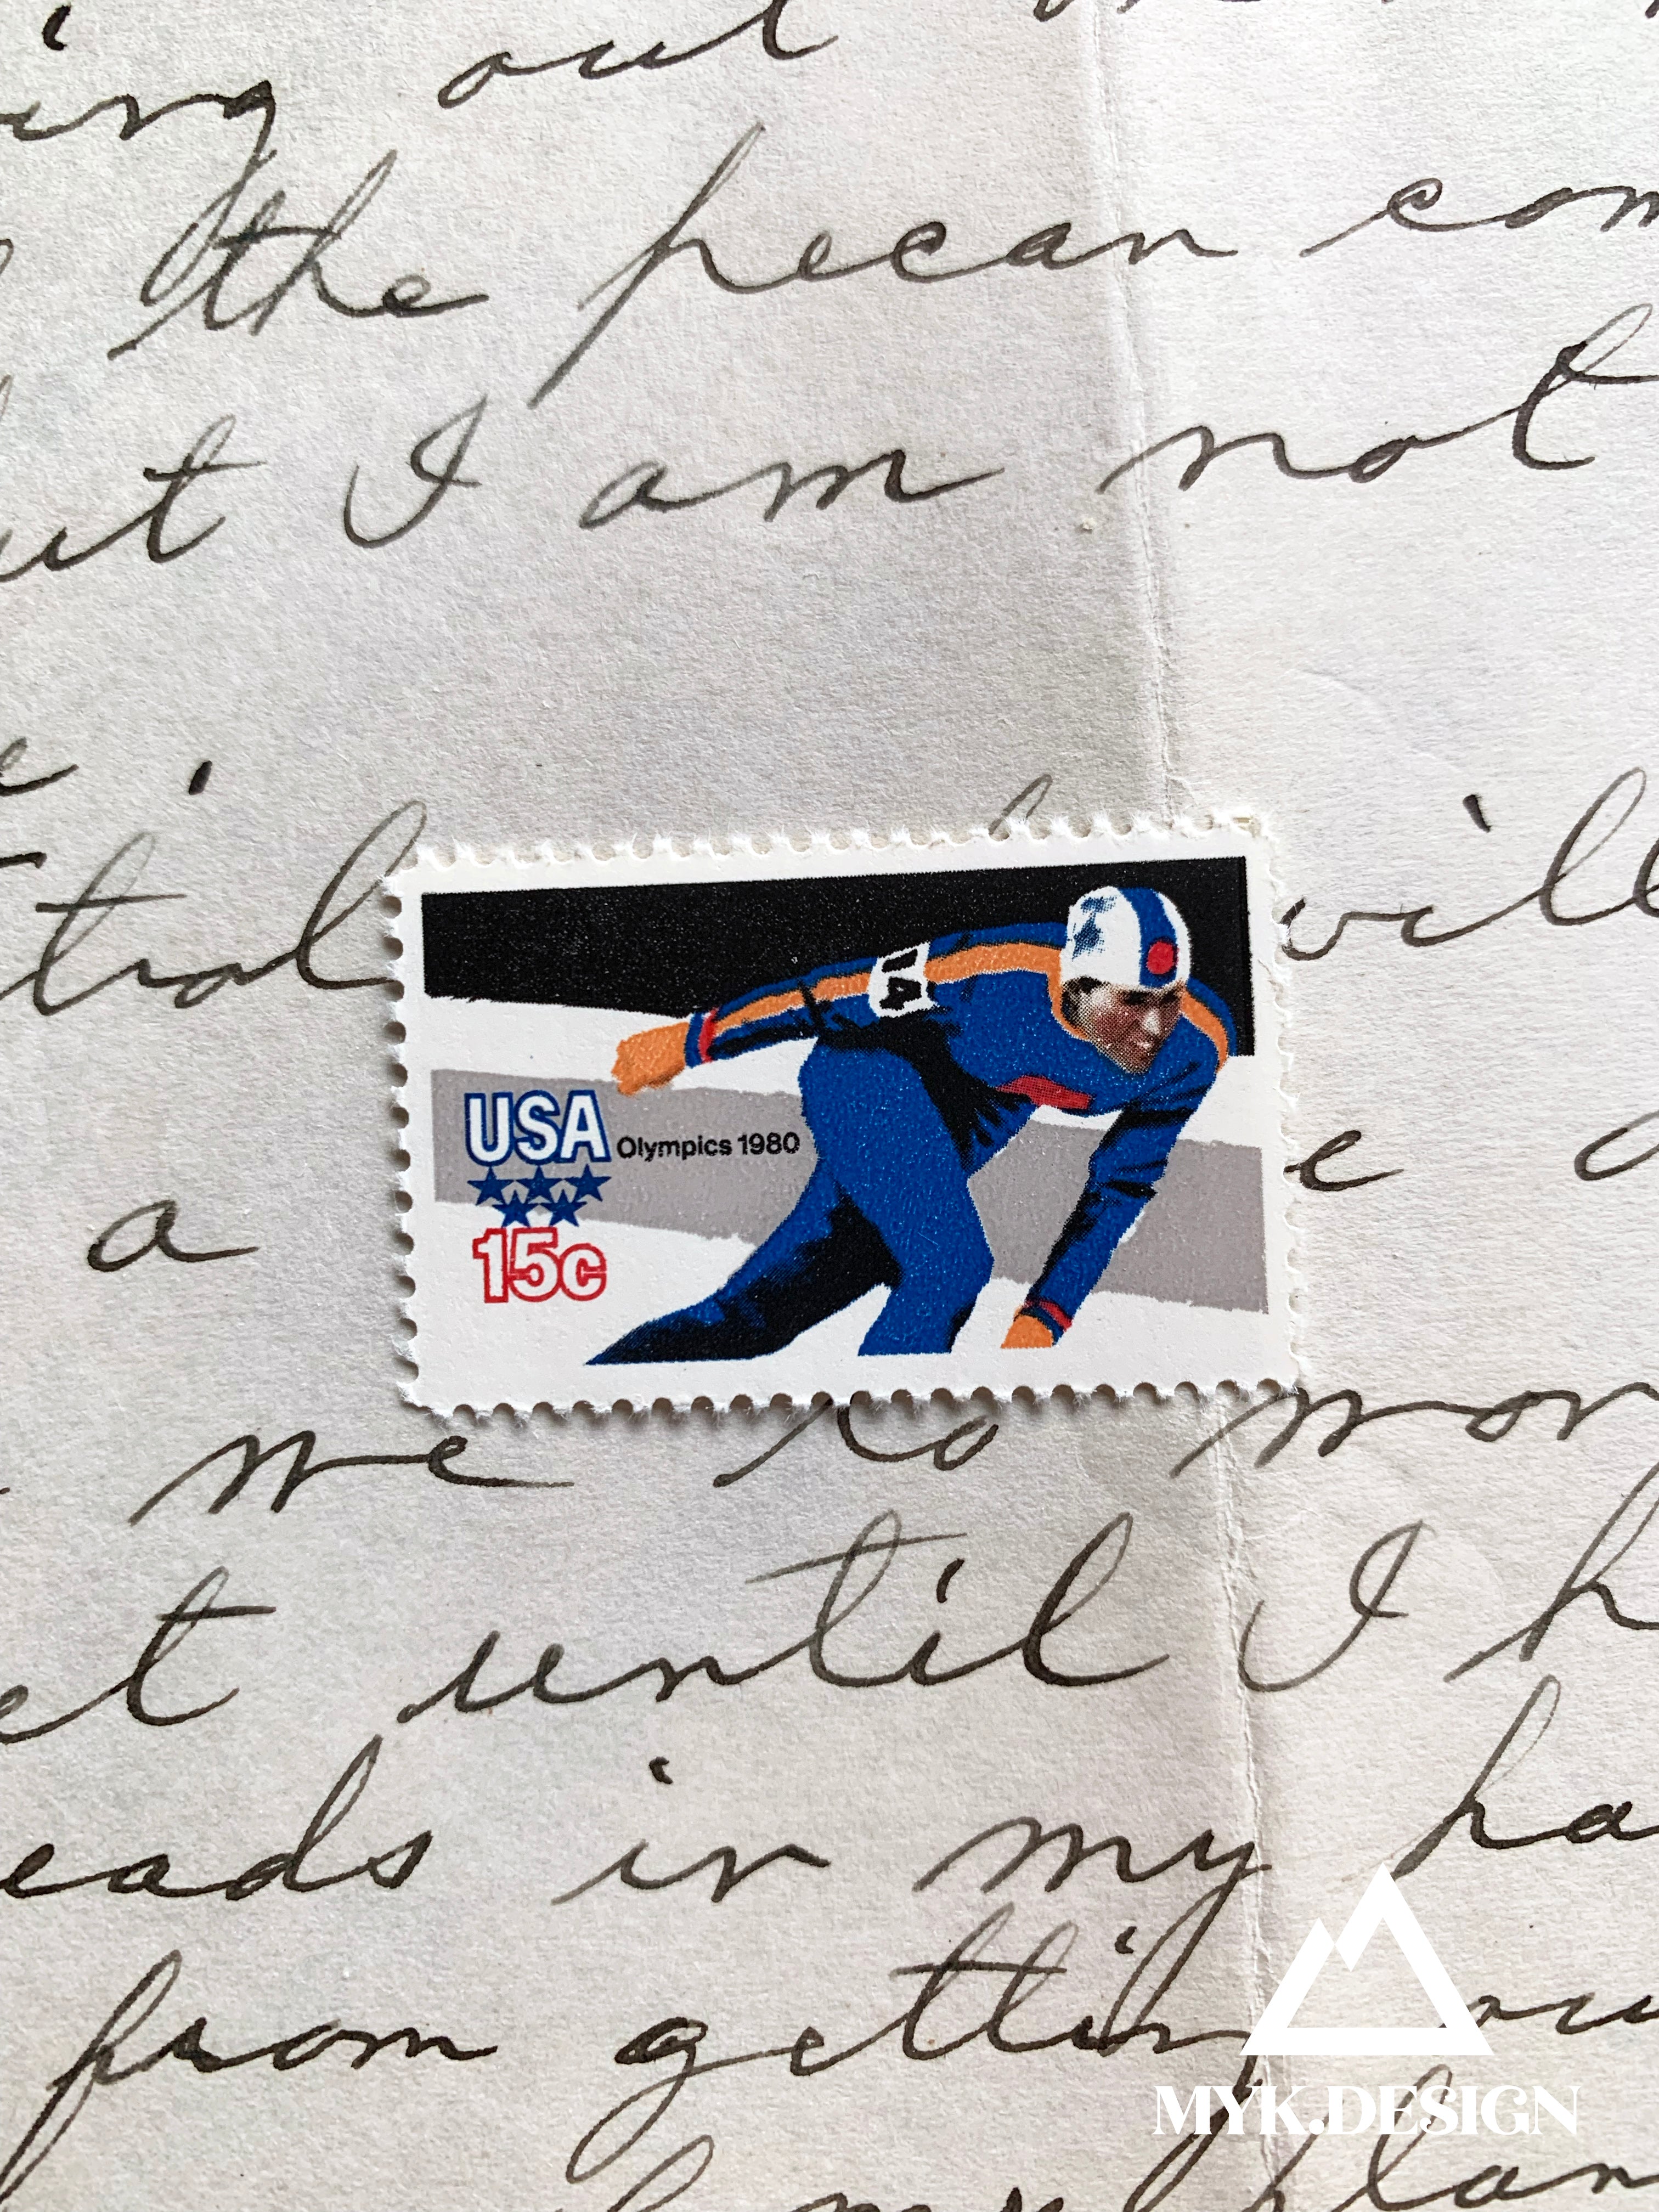 ing out
the pecan com
ut I am not
e.
trol will
a e
me to wor
et until I h
eads in my ha
from getting ou
my plan
14
USA Olympics 1980
15c
MYK.DESIGN